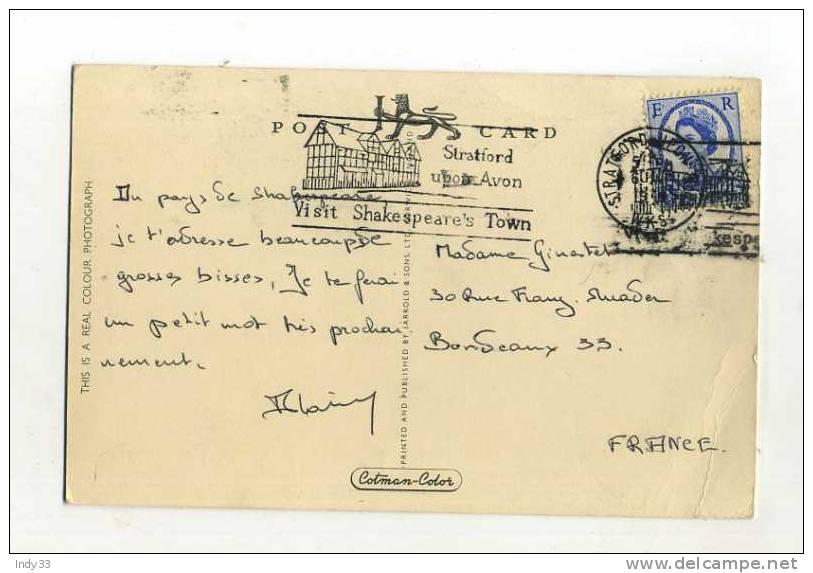 POST CARD
E R
Stratford
upon Avon
Visit Shakespeare's Town
STRATFORD
kespe
Du pays de Shakespeare
je t'adresse beaucoup de
grosses bisses, Je te ferai
un petit mot très prochai
nement.
Alain
Madame
30 Rue Franz
Bordeaux 33.
FRANCE.
THIS IS A REAL COLOUR PHOTOGRAPH
PRINTED AND PUBLISHED BY JARROLD & SONS, LTD.
Cotman-Color
Indy33
delcampe.net